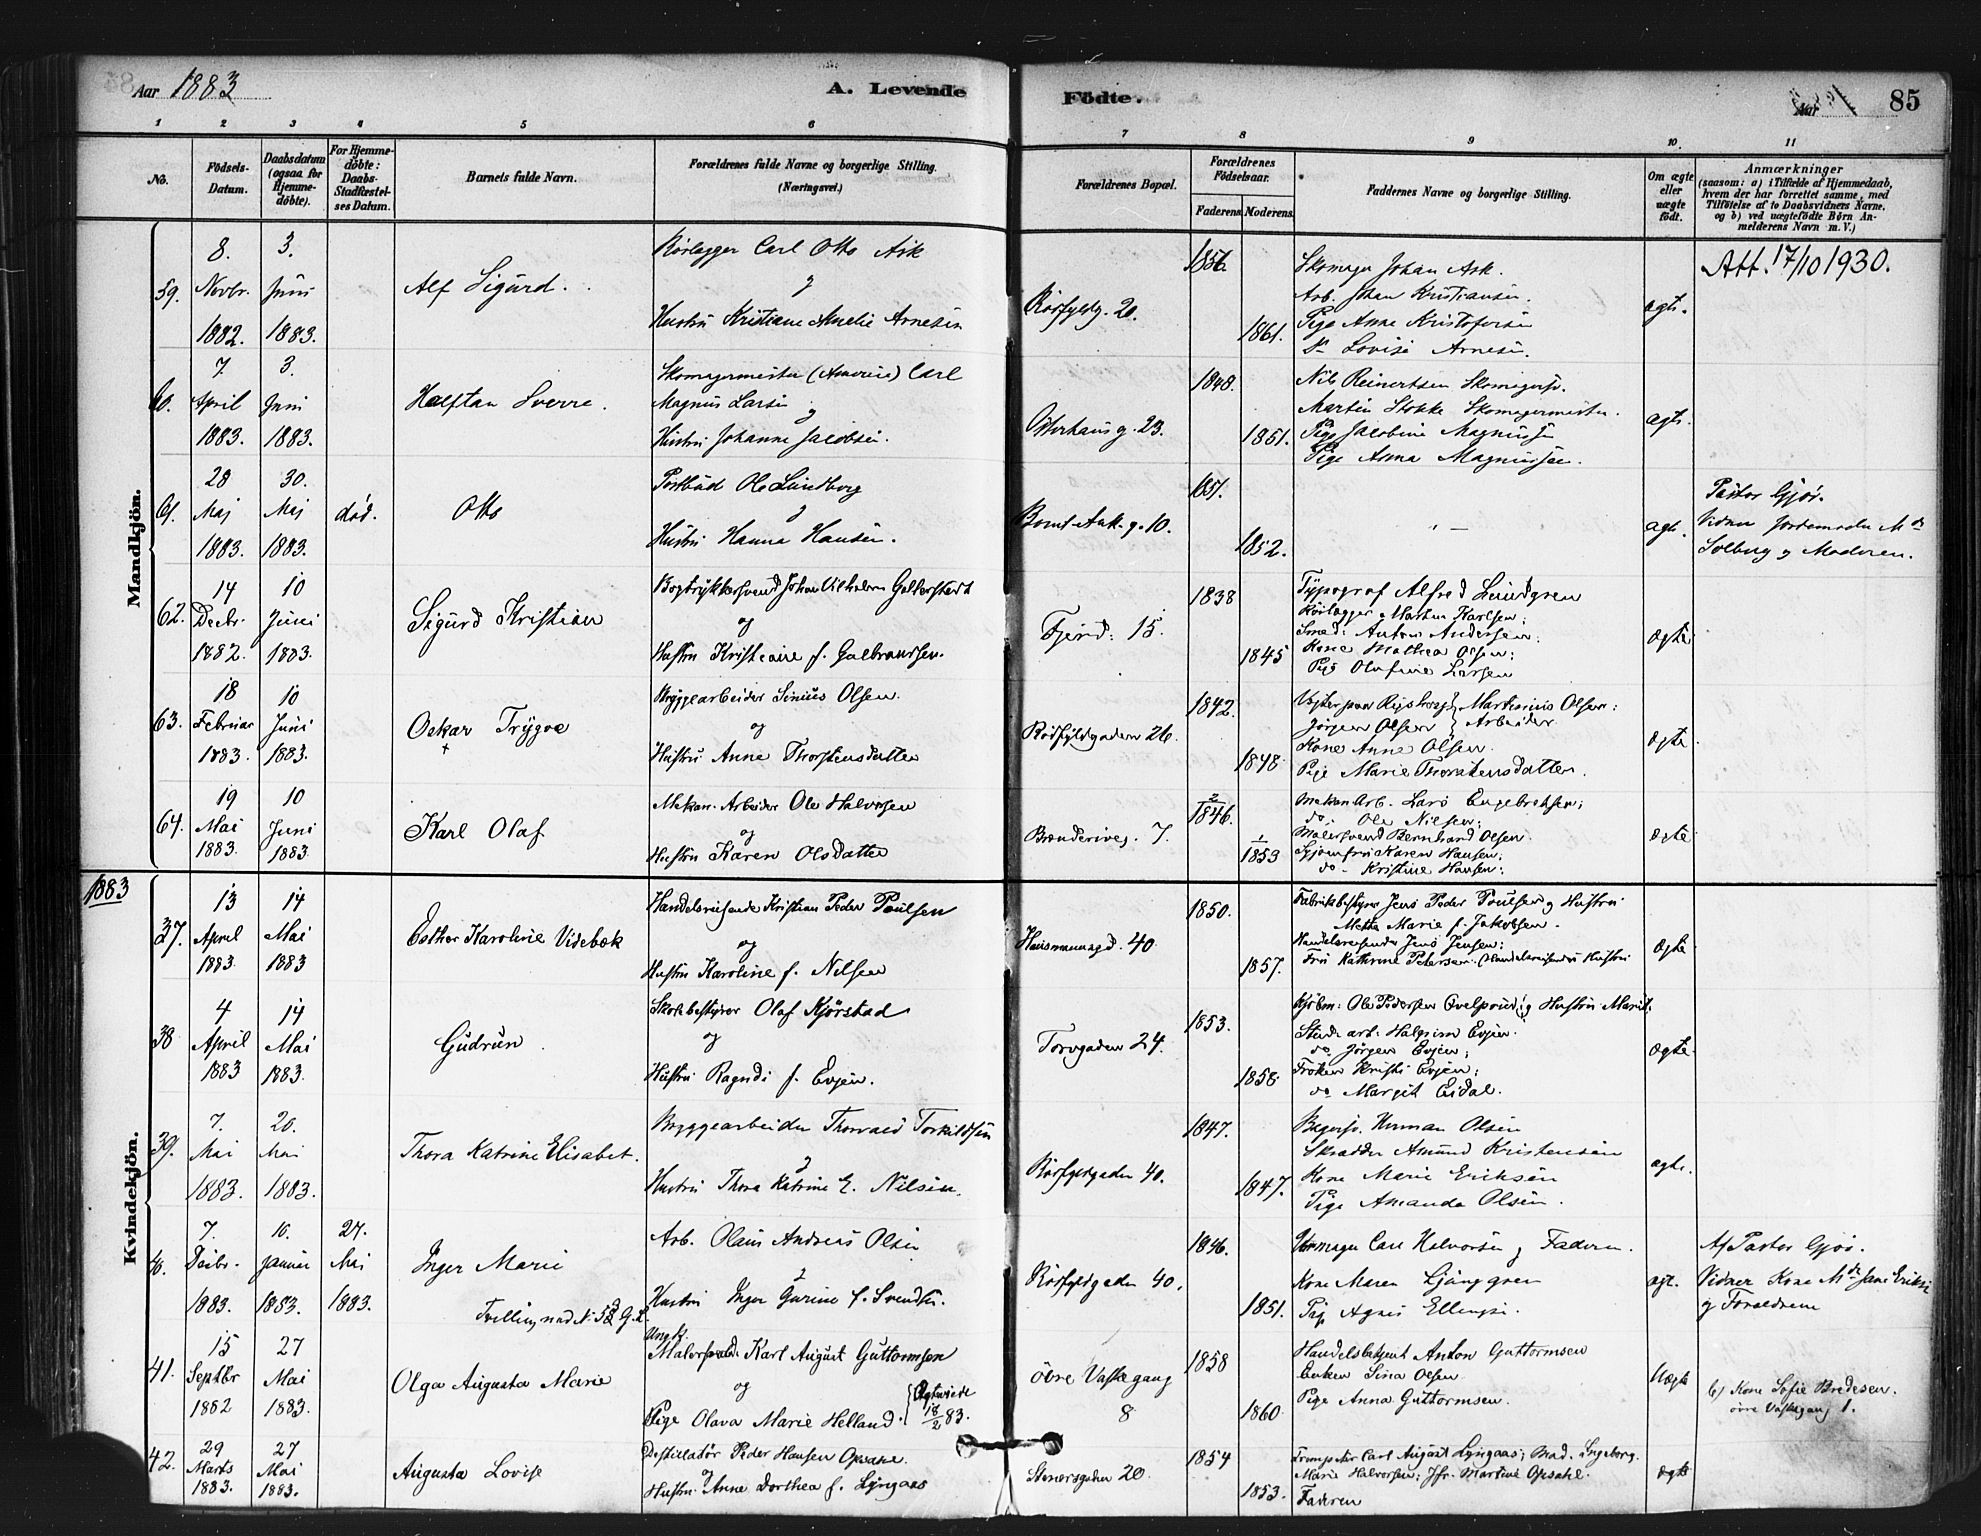 Aar 1883
A. Levende Födte.
Aar
85
1 2 3 4 5 6 7 8 9 10. 11
No.
Födsels-Datum.
Daabsdatum (ogsaa for Hjemme-döbte).
For Hjemme-döbte: Daabs-Stadfæstel-ses Datum.
Barnets fulde Navn.
Forældrenes fulde Navne og borgerlige Stilling. (Næringsvei.)
Forældrenes Bopæl.
Forældrenes Födselsaar.
Faderens. Moderens.
Faddernes Navne og borgerlige Stilling.
Om ægte eller uægte födt.
Anmærkninger
(saasom: a) i Tilfælde af Hjemmedaab, hvem der har forrettet samme, med Tilföielse af to Daabsvidners Navne, og b) ved uægtefödte Börn Anmelderens Navn m. V.)
Mandkjön.
59. 8. Novbr. 1882. 3. Juni 1883.
Alf Sigurd.
Rörlægger Carl Otto Ask
og
Hustru Kristiane Amelie Arnesen
Rörfyldg. 20.
1856 1861.
Skomager Johan Ask.
Arb. Johan Kristiansen.
Pige Anne Kristofersen
Do Lovise Arnesen.
ægte.
Att. 17/10 1930.
60. 7. April 1883. 3. Juni 1883.
Halftan Sverre.
Skomagermester (Amerika) Carl
Magnus Larsen
og
Hustru Johanne Jacobsen.
Osterhausg. 23.
1848. 1851.
Nils Reinertsen Skomagersv.
Martin Stokke Skomagermester.
Pige Jacobine Magnussen
Pige Anna Magnussen.
ægte.
61. 28 Maj 1883. 30. Maj 1883. död.
Otto
Postbud Ole Lundborg
og
Hustru Hanna Hansen.
1851. 1852.
ægte.
Pastor Gjör.
Vidner Jordemoder Md
Solberg og Moderen.
62. 14 Decbr. 1882. 10 Juni 1883.
Sigurd Kristian
Bogtrykkersvend Johan Vilhelm
og
Hustru Kristiane f. Gulbrandsen.
Fjerd: 15.
1838 1845
Typograf Alfred Lundgren
Rörlægger Martin Karlsen:
Smed: Anton Andersen:
Kone Mathea Olsen:
Pige Olufine Larsen
ægte
63. 18 Februar 1883. 10 Juni 1883.
Oskar Trygve
+
Bryggearbeider Sinius Olsen.
og
Hustru Anne Thorstensdatter
Rörfyldgaden 26.
1842. 1848
Martinius Olsen:
Jörgen Olsen } Arbeider
Kone Anne Olsen.
Pige Marie Thorstensdatter.
ægte
64. 19 Mai 1883. 10 Juni 1883.
Karl Olaf
Mekan. Arbeider Ole Halvorsen
og
Hustru Karen Olsdatter
Brænderivej. 7.
2/1846. 1/1853
Mekan Arb. Lars Engebretsen:
do. Ole Nilsen:
Malersvend Bernhard Olsen.
Karen Hansen:
do. Kristine Hansen:
ægte
1883
Kvindekjön.
37. 13 April 1883. 14 Mai 1883
Esther Karoline Videbæk
Handelsreisende Kristian Peder Poulsen
og
Hustru Karoline f. Nilsen
Hausmannsgd. 40
1850. 1857.
Fabrikbestyrer Jens Peder Poulsen og Hustru
Mette Marie f. Jakobsen.
Handelsreisende Jens Jensen:
Fru Kathrine Petersen. (Handelsreisendes Hustru
ægte
38 4 April 1883 14 Mai 1883.
Gudrun
Skolebestyrer Olaf Kjörstad
og
Hustru Ragndi f. Evjen.
Torvgaden 24.
1853. 1858
Kjöbm: Ole Pedersen og Hustru Marit:
Stud. art: Halgrim Evjen.
do Jörgen Evjen;
Fröken Kristi Evjen:
do Margit Eidal.
ægte.
39. 7. Mai 1883. 20. Mai 1883.
Thora Katrine Elisabet.
Bryggearbeider Thorvald Torkildsen
og
Hustru Thora Katrine E. Nilsen.
Rörfyldgaden 40.
1847. 1847.
Bagersv. Herman Olsen
Skrædder Amund Kristensen
Kone Marie Eriksen
Pige Amanda Olsen.
ægte.
40. 7. Decbr. 1883. Januar 1883. 27. Mai 1883.
Inger Marie
Tvilling med N. 58 G.
Arb. Olaus Andreas Olsen
og
Hustru Inger Gurine f. Svendsn.
Rörfyldgaden 40.
1846. 1851.
Carl Halvorsen og Faderen.
Kone Maren Ljunggren
Pige Agnes Ellingsen.
ægt.
Af Pastor Gjör.
Vidner Kone Md Jane Eriksen
og Forældrene
41. 15 Septbr 1882 27 Mai 1883.
Olga Augusta Marie
Ungk.
Malersvend: Karl August Guttormsen
og
Pige Olava Marie Helland. { Ægteviede 18/2 83.
övre Vaskegang
8
1858 1860
Handelsbetjent Anton Guttormsen
Enken Lina Olsen
Pige Anna Guttormsen.
Uægte
b) Kone Sofie Bredesen.
övre Vaskegang 1.
42. 29 Marts 1883. 27 Mai 1883.
Augusta Lovise
Destillatör Peder Hansen Opsahl.
og
Hustru Anne Dorthea f. Lyngaas
Stenersgaden 20.
1854 1853.
Carl August Lyngaas; Mad. Ingeborg
Marie Halvorsen; Jfr. Martine Opsahl.
Faderen
ægte